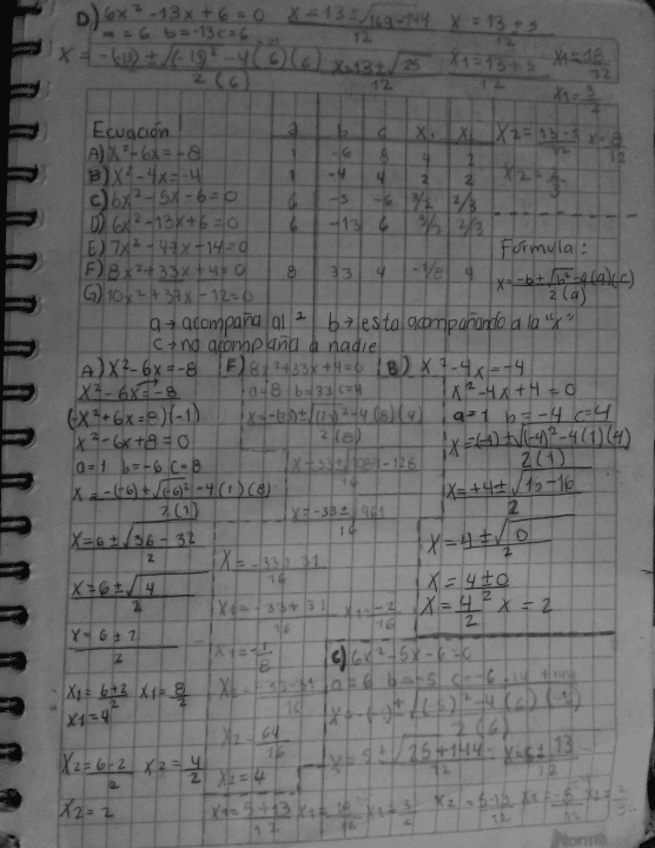 D) 6x² -13x + 6 = 0   x = 13 ± √169-144 / 12   x = 13 + 5 / 12
a = 6   b = -13   c = 6
x = -(-13) ± √(-13)² - 4(6)(6) / 2(6)   x = 13 ± √25 / 12   x1 = 13 + 5 / 12   x1 = 18 / 12
x1 = 3 / 2
Ecuación   a   b   c   x1   x2   x2 = 13 - 5 / 12   x = 8 / 12
A) x² - 6x = -8   1   -6   8   4   2
B) x² - 4x = -4   1   -4   4   2   2   x2 = 2 / 3
C) 6x² - 5x - 6 = 0   6   -5   -6   3/2   2/3
D) 6x² - 13x + 6 = 0   6   -13   6   3/2   2/3
E) 7x² - 47x - 14 = 0   Formula:
F) 8x² + 33x + 4 = 0   8   33   4   -1/8   4   x = -b ± √b² - 4(a)(c) / 2(a)
G) 10x² + 37x - 12 = 0
a → acompaña al ²   b → esta acompañando a la "x"
c → no acompaña a nadie
A) x² - 6x = -8
x² - 6x = -8
(-x² + 6x = 8)(-1)
x² - 6x + 8 = 0
a = 1   b = -6   c = 8
x = -(-6) ± √(-6)² - 4(1)(8) / 2(1)
x = 6 ± √36 - 32 / 2
x = 6 ± √4 / 2
x = 6 ± 2 / 2
x1 = 6 + 2 / 2   x1 = 8 / 2
x1 = 4
x2 = 6 - 2 / 2   x2 = 4 / 2
x2 = 2
F) 8x² + 33x + 4 = 0
a = 8   b = 33   c = 4
x = -(33) ± √(33)² - 4(8)(4) / 2(8)
x = -33 ± √1089 - 128 / 16
x = -33 ± √961 / 16
x = -33 ± 31 / 16
x1 = -33 + 31 / 16   x1 = -2 / 16
x1 = -1 / 8
x2 = -33 - 31 / 16
x2 = 64 / 16
x2 = 4
B) x² - 4x = -4
x² - 4x + 4 = 0
a = 1   b = -4   c = 4
x = -(-4) ± √(-4)² - 4(1)(4) / 2(1)
x = +4 ± √16 - 16 / 2
x = 4 ± √0 / 2
x = 4 ± 0 / 2
x = 4 / 2   x = 2
C) 6x² - 5x - 6 = 0
a = 6   b = -5   c = -6   +144
x = -(-5) ± √(-5)² - 4(6)(-6) / 2(6)
x = 5 ± √25 + 144 / 12   x = 5 ± 13 / 12
x1 = 5 + 13 / 12   x1 = 18 / 12   x1 = 3 / 2   x2 = 5 - 13 / 12   x2 = -8 / 12   x2 = 2 / 3
Norma